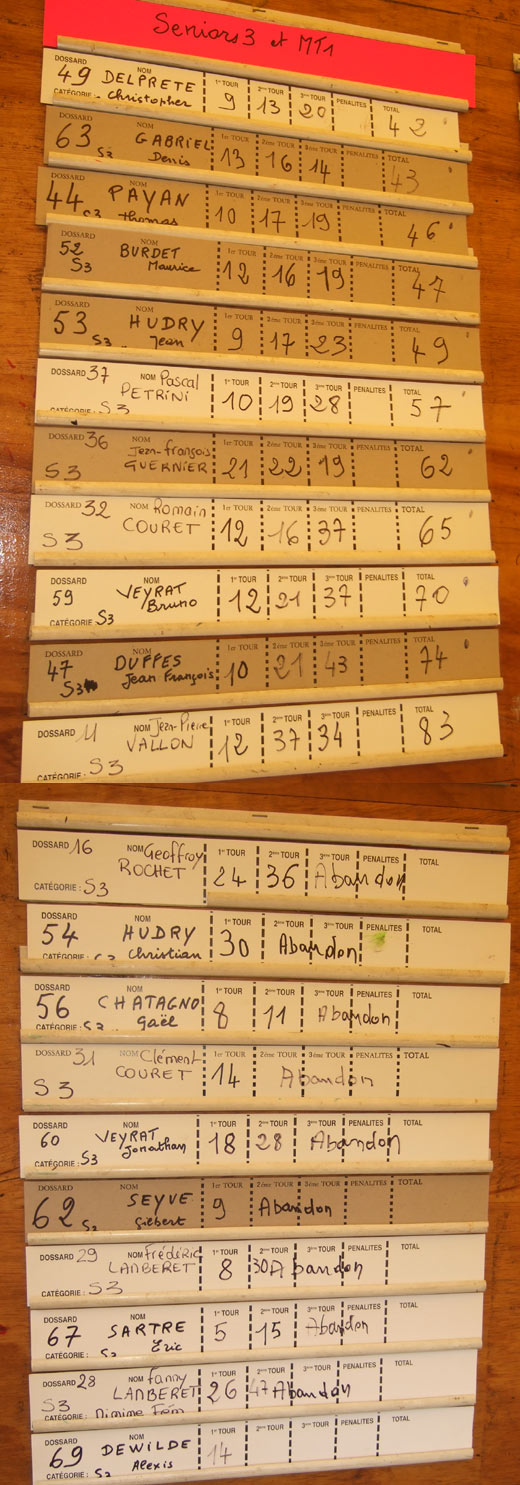 Seniors 3 et MT1
DOSSARD NOM 1er TOUR 2ème TOUR 3ème TOUR PENALITES TOTAL
49 DELPRETE 9 13 20 42
CATÉGORIE : Christopher
DOSSARD NOM 1er TOUR 2ème TOUR 3ème TOUR PENALITES TOTAL
63 S3 GABRIEL 13 16 14 43
Denis
DOSSARD NOM 1er TOUR 2ème TOUR 3ème TOUR PENALITES TOTAL
44 PAYAN 10 17 19 46
Thomas
DOSSARD NOM 1er TOUR 2ème TOUR 3ème TOUR PENALITES TOTAL
52 BURDET 12 16 19 47
S3 Maurice
DOSSARD NOM 1er TOUR 2ème TOUR 3ème TOUR PENALITES TOTAL
53 HUDRY 9 17 23 49
S3 Jean
DOSSARD 37 NOM Pascal 1er TOUR 2ème TOUR 3ème TOUR PENALITES TOTAL
PETRINI 10 19 28 57
CATÉGORIE : S3
DOSSARD 36 NOM 1er TOUR 2ème TOUR 3ème TOUR PENALITES TOTAL
Jean-François
S3 GUERNIER 21 22 19 62
DOSSARD 32 NOM Romain 1er TOUR 2ème TOUR 3ème TOUR PENALITES TOTAL
S3 COURET 12 16 37 65
DOSSARD NOM 1er TOUR 2ème TOUR 3ème TOUR PENALITES TOTAL
59 VEYRAT 12 21 37 70
CATÉGORIE : S3 Bruno
DOSSARD NOM 1er TOUR 2ème TOUR 3ème TOUR PENALITES TOTAL
47 DUFFES 10 21 43 74
S3 Jean François
DOSSARD 11 NOM Jean-Pierre 1er TOUR 2ème TOUR 3ème TOUR PENALITES TOTAL
VALLON 12 37 34 83
CATÉGORIE : S3
DOSSARD 16 NOM Geoffroy 1er TOUR 2ème TOUR 3ème TOUR PENALITES TOTAL
ROCHET 24 36 Abandon
CATÉGORIE : S3
DOSSARD NOM 1er TOUR 2ème TOUR 3ème TOUR PENALITES TOTAL
54 HUDRY 30 Abandon
CATÉGORIE : Christian
DOSSARD NOM 1er TOUR 2ème TOUR 3ème TOUR PENALITES TOTAL
56 CHATAGNO 8 11 Abandon
CATÉGORIE : Gaël
DOSSARD 31 NOM Clément 1er TOUR 2ème TOUR 3ème TOUR PENALITES TOTAL
S3 COURET 14 Abandon
DOSSARD NOM 1er TOUR 2ème TOUR 3ème TOUR PENALITES TOTAL
60 VEYRAT 18 28 Abandon
CATÉGORIE : S3 Jonathan
DOSSARD NOM 1er TOUR 2ème TOUR 3ème TOUR PENALITES TOTAL
62 SEYVE 9 Abandon
Gilbert
DOSSARD 29 NOM Frédéric 1er TOUR 2ème TOUR 3ème TOUR PENALITES TOTAL
LANBERET 8 30 Abandon
CATÉGORIE : S3
DOSSARD NOM 1er TOUR 2ème TOUR 3ème TOUR PENALITES TOTAL
67 SARTRE 5 15 Abandon
CATÉGORIE : Eric
DOSSARD 28 NOM Fanny 1er TOUR 2ème TOUR 3ème TOUR PENALITES TOTAL
S3 LANBERET 26 47 Abandon
CATÉGORIE :
DOSSARD NOM 1er TOUR 2ème TOUR 3ème TOUR PENALITES TOTAL
69 DEWILDE 14
CATÉGORIE : Alexis